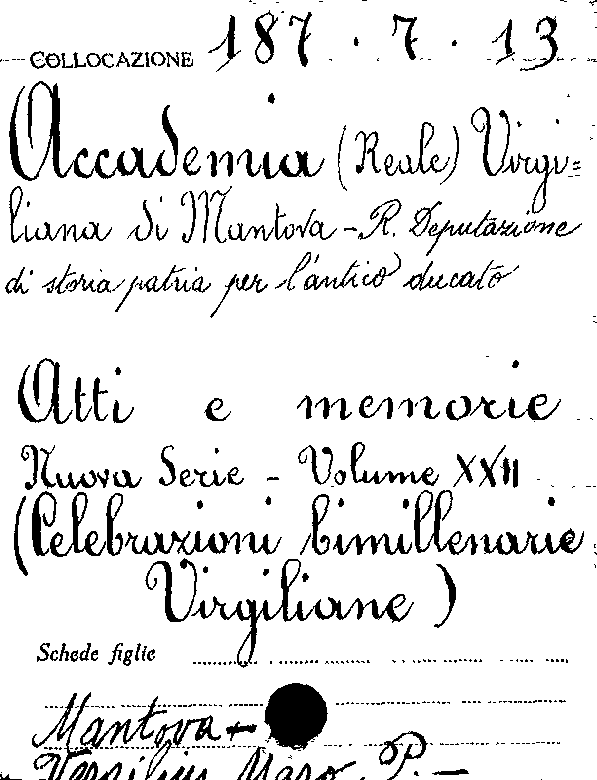 COLLOCAZIONE 187 . 7 . 13
Accademia (Reale) Virgi=
liana di Mantova - R. Deputazione
di storia patria per l'antico ducato
Atti e memorie
Nuova Serie - Volume XXII
(Celebrazioni bimillenarie
Virgiliane)
Schede figlie
Mantova +
Versilius Maro, P. -